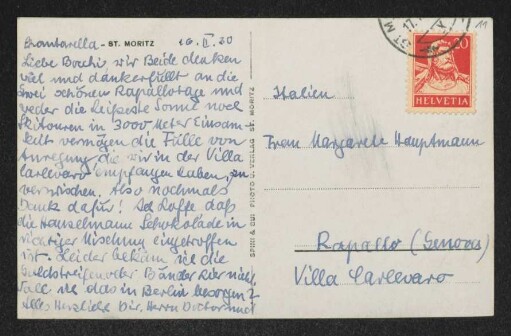 Chantarella - ST. MORITZ 26. II. 30
Liebe Bocchi, wir Beide denken
viel und dankerfüllt an die
zwei schönen Rapallotage und
weder die heißeste Sonne noch
Skitouren in 3000 Meter Einsam
keit vermögen die Fülle von
Anregung die wir in der Villa
Carlevaro empfangen haben, zu
verwischen. Also nochmals
Dank dafür! Ich hoffe daß
die Hanselmann Schokolade in
richtiger Mischung eingetroffen
ist. Leider bekam ich die
Goldstreifen oder Bänder hier nicht,
soll ich das in Berlin besorgen?
Alles Herzliche Dir, Herrn Doctor und
SPHN & SUI PHOTO U. VERLAG ST. MORITZ
ST M
20
HELVETIA
11
Italien
Frau Margarete Hauptmann
Rapallo (Genova)
Villa Carlevaro